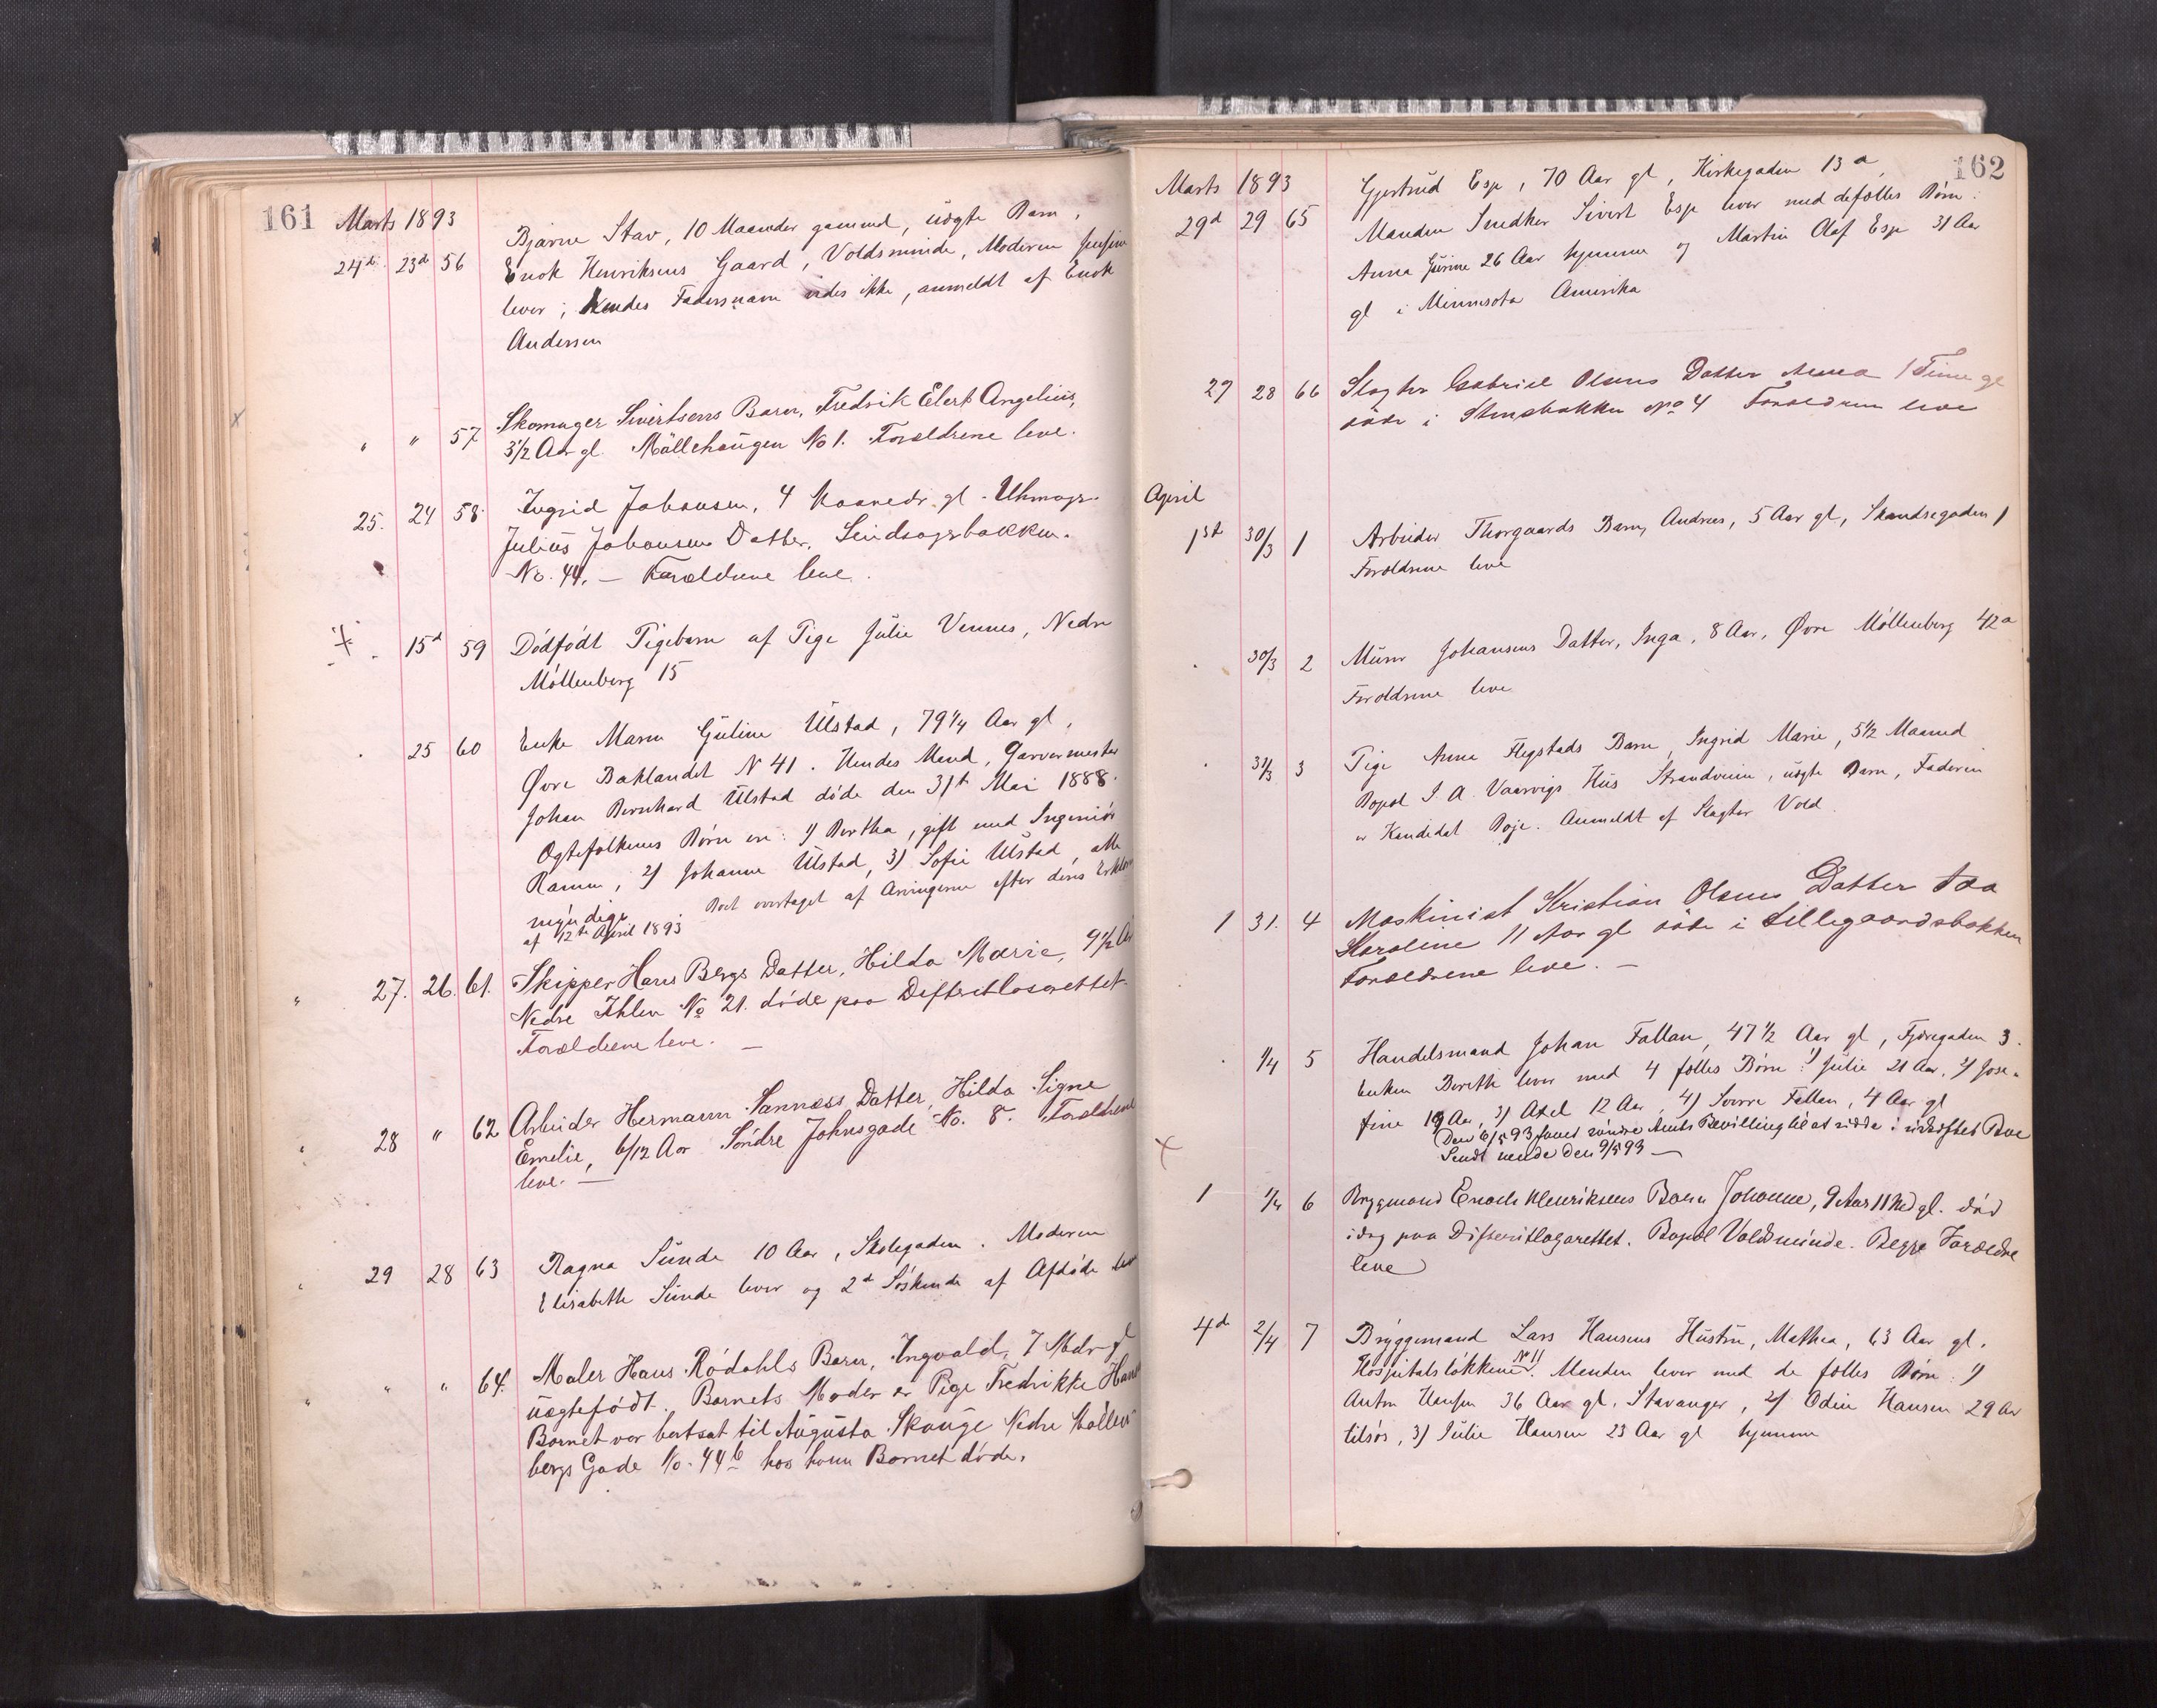 161 Marts 1893
24de 23d 56 Bjarne Stav, 10 Maaneder gammel, uægte Barn,
Enok Henriksens Gaard, Voldsminde, Moderen
lever; hendes Fadersnavn vides ikke, anmeldt af Enok
Andersen
" " 57 Skomager Sivertsens Barn, Fredrik Elert Angelius,
3½ Aar gl. Möllehaugen No 1. Forældrene leve.
25. 24 58 Ingrid Johansen, 4 Maaneder gl. Uhrmager
Julius Johansens Datter,
No. 44. — Forældrene leve.
15d 59 Dödfödt Pigebarn af Pige Julie Vennes, Nedre
Möllenberg 15
25 60 Enke Maren Guline Ulstad, 79¼ Aar gl,
Øvre Baklandet N 41. Hendes Mand, Garvermester
Johan Bernhard Ulstad döde den 31te Mai 1888.
Ægtefolkenes Börn ere: 1) Bertha, gift med Ingeniör
Ramm, 2) Johanne Ulstad, 3) Sofie Ulstad, alle
myndige Boet overtaget af Arvingerne efter deres Erklær
af 12te April 1893
" 27. 26. 61. Skipper Hans Bergs Datter, Hilda Marie, 9½ Aar
Nedre Ihlen No 21. döde paa Difteritlasarettet.
Forældrene leve. —
" 28 " 62 Arbeider Hermann Sannæss Datter, Hilda Signe
Emelie, 6/12 Aar Söndre Johnsgade No. 8. Forældrene
leve. —
" 29 28 63 Ragna Sunde 10 Aar, Skolegaden. Moderen
Elisabeth Sunde lever og 2de Söskende af Afdöde
" " " 64. Maler Hans Rödahls Barn, Ingvald, 7 Mdr gl
uægtefödt. Barnets Moder er Pige Fredrikke
Barnet var bortsat til Augusta Skauge Nedre Möllen
bergs Gade No. 44b hos hvem Barnet döde.
162
Marts 1893
29d 29 65 Gjertrud Esp, 70 Aar gl, Kirkegaden 13a,
Manden Snedker Sivert Esp lever med defælles Börn:
Anna Gurine 26 Aar hjemme og Martin Olaf Esp 31 Aar
gl i Minnesota Amerika
27 28 66 Slagter Gabriel Olsens Datter Anna 1 Time gl
döde i Stensbakken No 4 Forældrene leve
April
1st 30/3 1 Arbeider Thorgaards Barn, Andreas, 5 Aar gl, Skandsegaden 1
Forældrene leve
30/3 2 Murer Johansens Datter, Inga, 8 Aar, Øvre Möllenberg 42a
Forældrene leve
31/3 3 Pige Anna Flegstads Barn, Ingrid Marie, 5½ Maaned
Bopæl I. A. Vaarvigs Hus Strandveien, uægte Barn, Faderen
er Kandidat Boje. Anmeldt af Slagter Vold
1 31. 4 Maskinist Kristian Olsens Datter Ida
Karoline 11 Aar gl döde i Lillegaardsbakken
Forældrene leve. —
1/4 5 Handelsmand Johan Fallan, 47½ Aar gl, Fjæregaden 3.
Enken Berethe lever med 4 fælles Börn: 1) Julie 21 Aar, 2) Jose-
fine 19 Aar, 3) Axel 12 Aar, 4) Sverre Fallan, 4 Aar gl
Den 6/5 93 Amts Bevilling til at sidde i uskiftet Boe
Sendt Den 9/5 93 —
1 1/4 6 Bryggmand Enoch Henriksens Barn Johanne, 9 Aar 11 Md gl. död
idag paa Difteritlazarettet. Bopæl Voldsminde. Begge Forældre
leve
4de 2/4 7 Bryggemand Lars Hansens Hustru, Mathea, 63 Aar gl.
Hospitalslökken No 11. Manden lever med de fælles Börn: 1)
Anton Hansen 36 Aar gl. Stavanger, 2) Odin Hansen 29 Aar
tilsös, 3) Julie Hansen 23 Aar gl hjemme